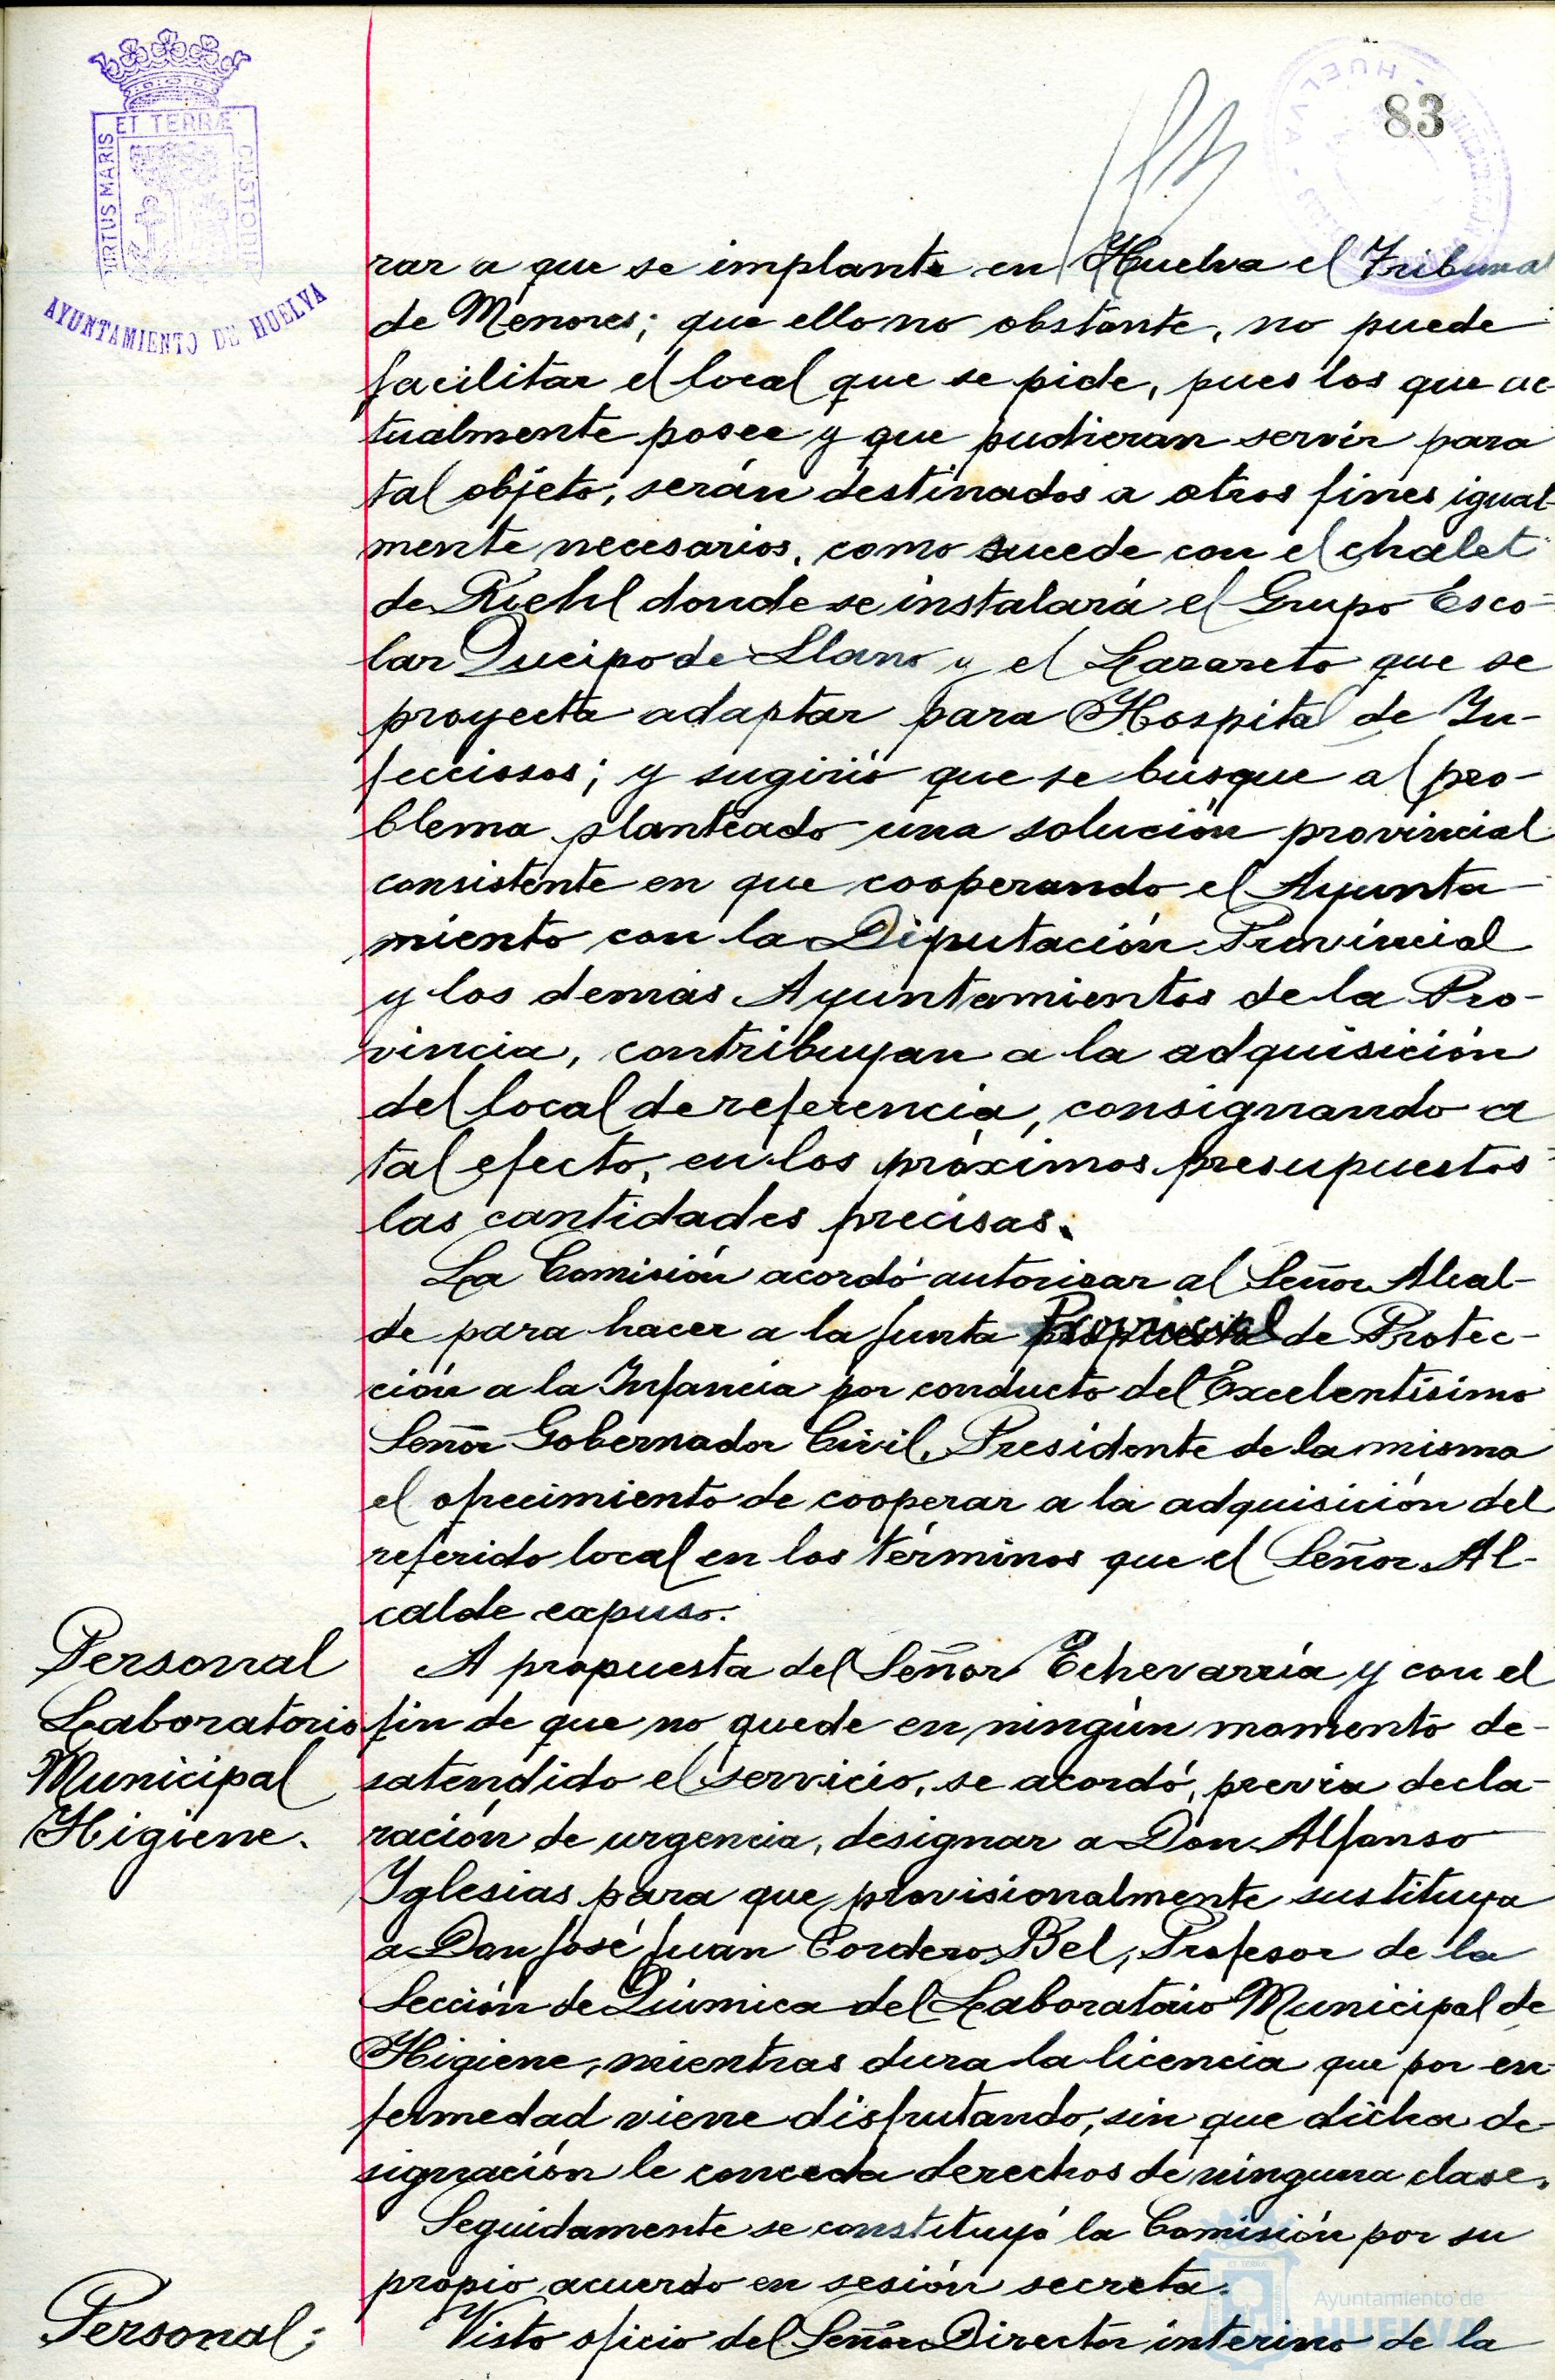 ET TERRÆ
VIRTUS MARIS
CUSTODIA
AYUNTAMIENTO DE HUELVA
HUELVA
83
rar a que se implante en Huelva el Tribunal
de Menores; que ello no obstante, no puede
facilitar el local que se pide, pues los que ac
tualmente posee y que pudieran servir para
tal objeto, serán destinados a otros fines igual-
mente necesarios, como sucede con el chalet
de Riehl donde se instalará el Grupo Esco-
lar Queipo de Llano y el Lazareto que se
proyecta adaptar para Hospital de In-
fecciosos; y sugirió que se busque al pro-
blema planteado una solución provincial
consistente en que cooperando el Ayunta-
miento con la Diputación Provincial
y los demás Ayuntamientos de la Pro-
vincia, contribuyan a la adquisición
del local de referencia, consignando a
tal efecto, en los próximos presupuestos
las cantidades precisas.
La Comisión acordó autorizar al Señor Alcal-
de para hacer a la Junta Provincial de Protec-
ción a la Infancia por conducto del Excelentísimo
Señor Gobernador Civil, Presidente de la misma
el ofrecimiento de cooperar a la adquisición del
referido local en los términos que el Señor Al-
calde expuso.
Personal
Laboratorio
Municipal
Higiene.
A propuesta del Señor Echevarría y con el
fin de que no quede en ningún momento de-
satendido el servicio, se acordó, previa decla-
ración de urgencia, designar a Don Alfonso
Yglesias para que provisionalmente sustituya
a Don José Juan Cordero Bel, Profesor de la
Sección de Química del Laboratorio Municipal de
Higiene, mientras dura la licencia que por en-
fermedad viene disfrutando, sin que dicha de-
signación le conceda derechos de ninguna clase.
Seguidamente se constituyó la Comisión por su
propio acuerdo en sesión secreta.
Personal:
Visto oficio del Señor Director interino de la
Ayuntamiento de
HUELVA